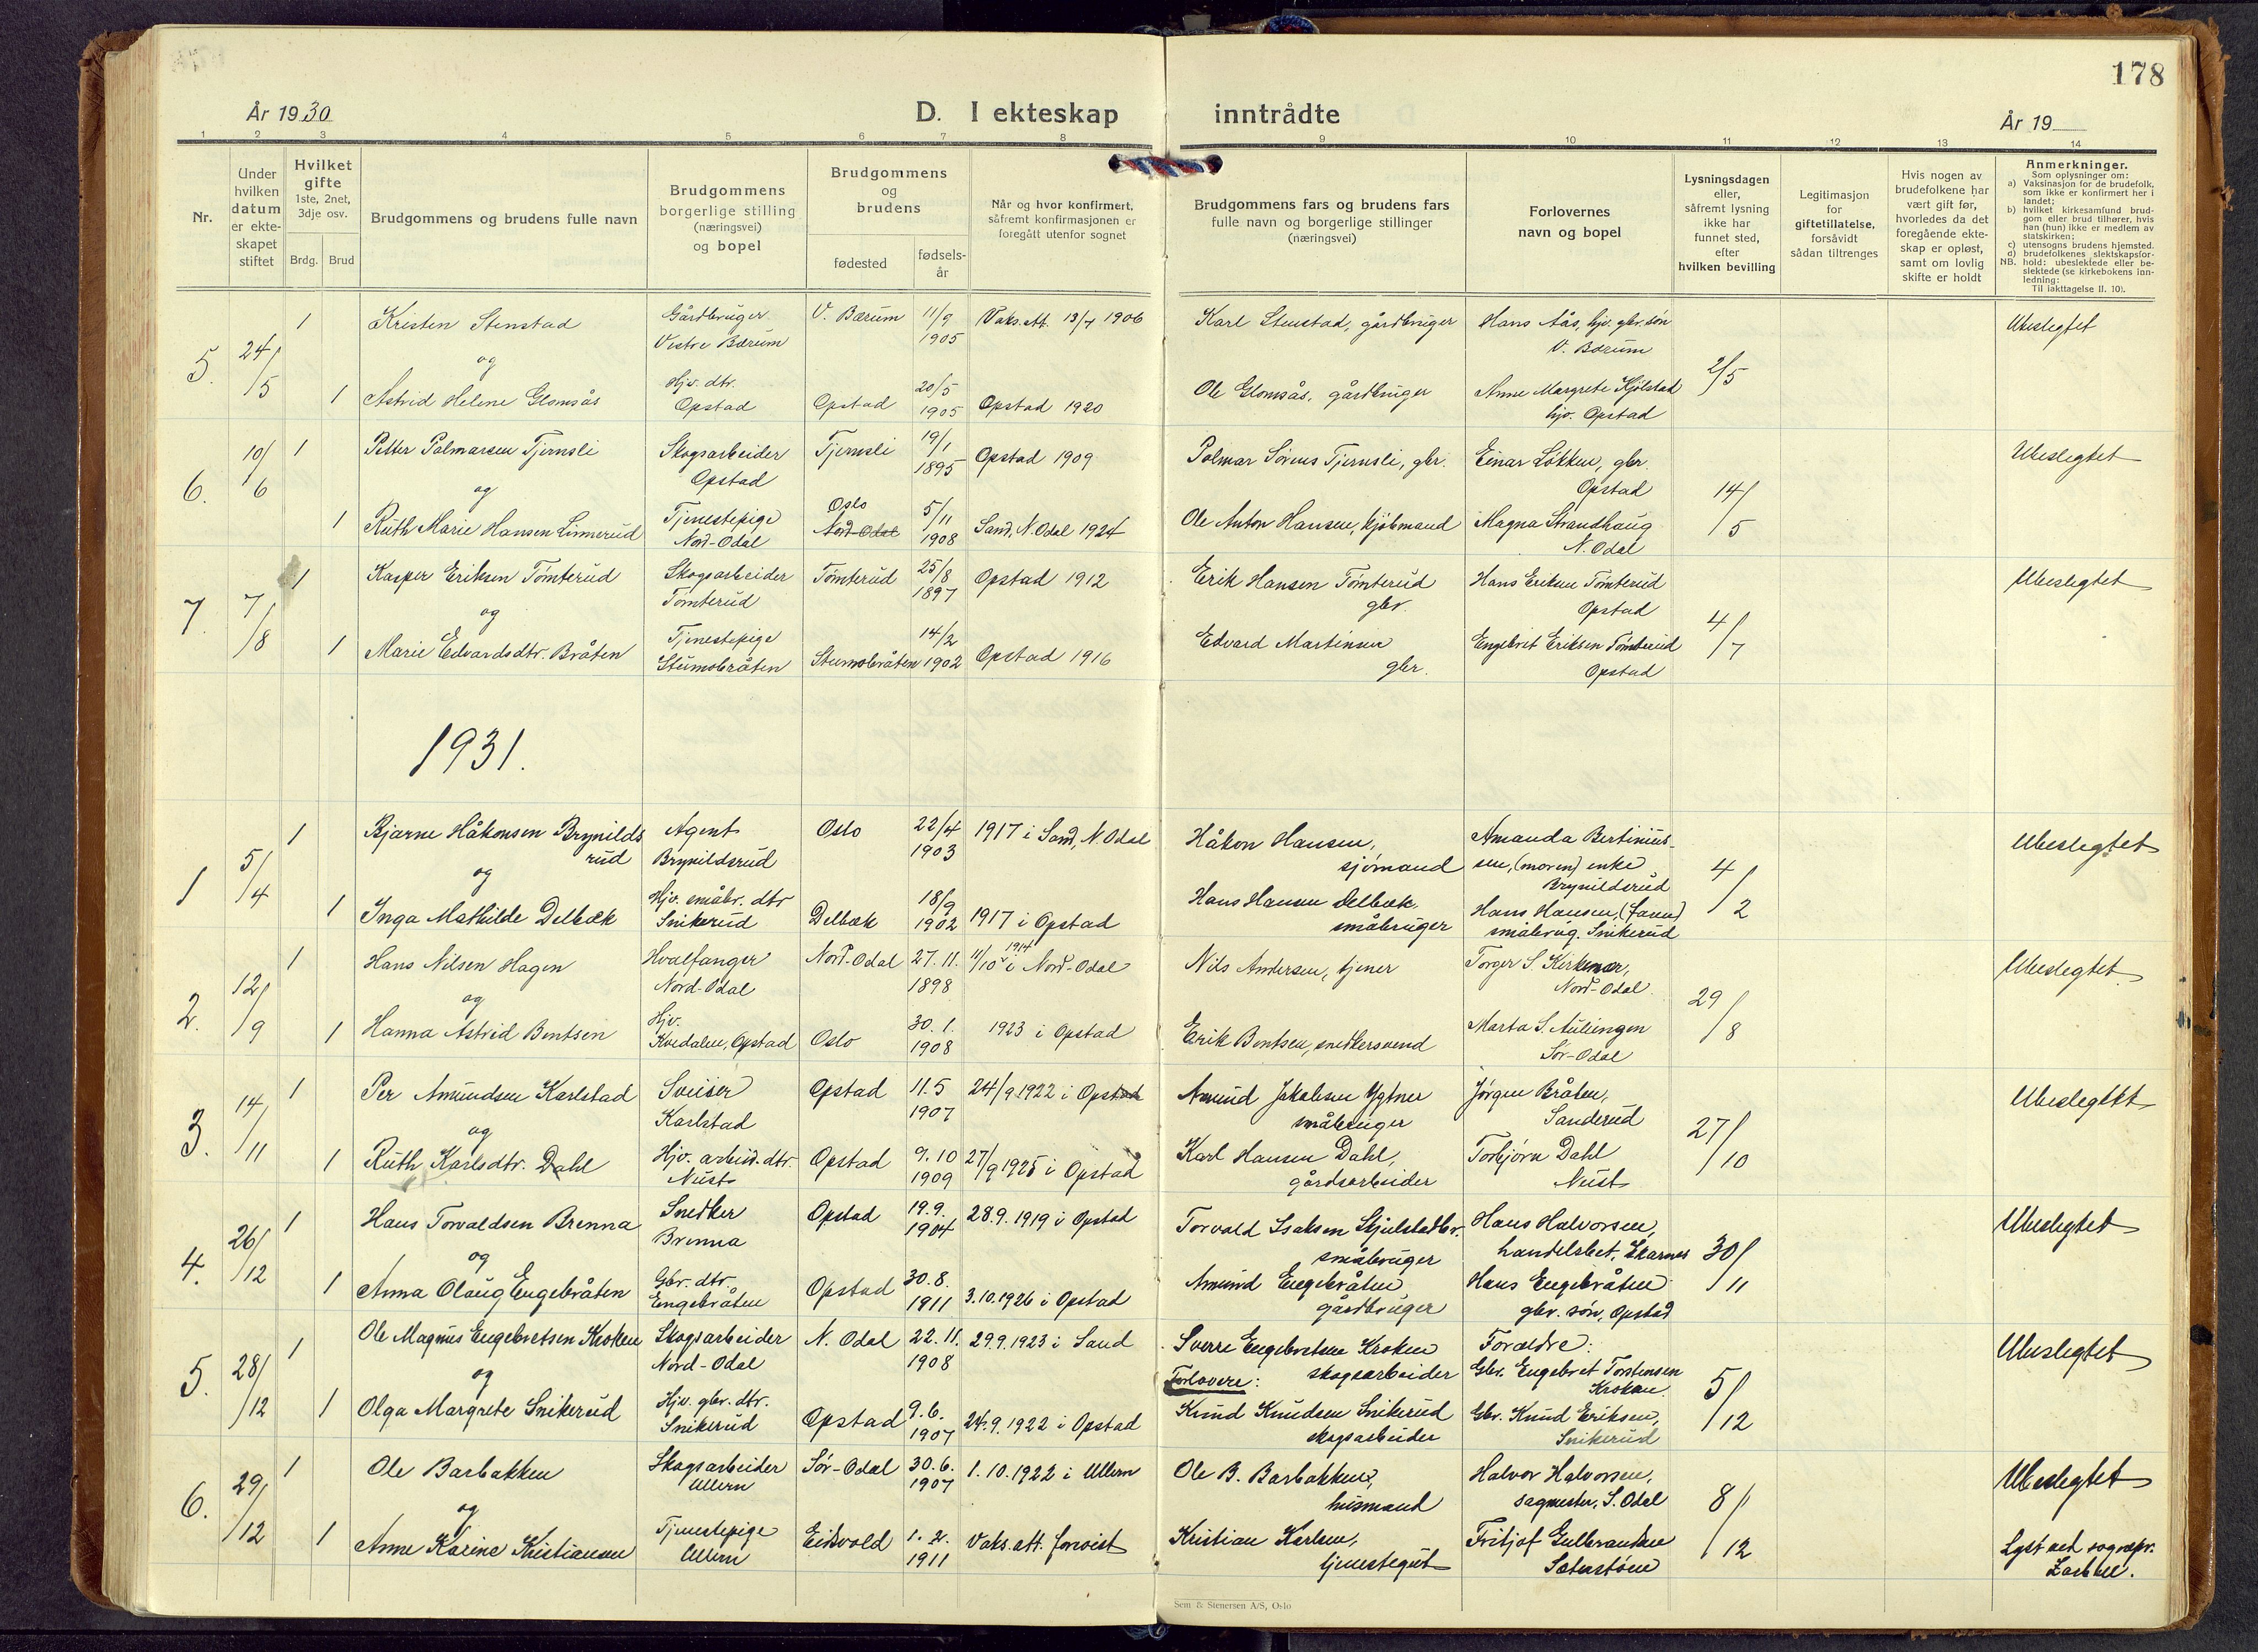 178
År 1930
D. I ekteskap inntrådte
År 19
1 2 3 4 5 6 7 8 9 10 11 12 13 14
Nr.
Under
hvilken
datum
er ekte-
skapet
stiftet
Hvilket
gifte
1ste, 2net,
3dje osv.
Brdg. Brud
Brudgommens og brudens fulle navn
Brudgommens
borgerlige stilling
(næringsvei)
og bopel
Brudgommens
og
brudens
fødested
fødsels-
år
Når og hvor konfirmert,
såfremt konfirmasjonen er
foregått utenfor sognet
Brudgommens fars og brudens fars
fulle navn og borgerlige stillinger
(næringsvei)
Forlovernes
navn og bopel
Lysningsdagen
eller,
såfremt lysning
ikke har
funnet sted,
efter
hvilken bevilling
Legitimasjon
for
giftetillatelse,
forsåvidt
sådan tiltrenges
Hvis nogen av
brudefolkene har
vært gift før,
hvorledes da det
foregående ekte-
skap er opløst,
samt om lovlig
skifte er holdt
Anmerkninger.
Som oplysninger om:
a) Vaksinasjon for de brudefolk,
som ikke er konfirmert her i
landet;
b) hvilket kirkesamfund brud-
gom eller brud tilhører, hvis
han (hun) ikke er medlem av
statskirken;
c) utensogns brudens hjemsted.
d) brudefolkenes slektskapsfor-
NB. hold: ubeslektede eller be-
slektede (se kirkebokens inn-
ledning:
Til iakttagelse II. 10).
5. 24/5
1 Kristen Stenstad Gårdbruger V. Bærum 11/9 Vaks. att. 13/7 1906 Karl Stenstad, gårdbruger Hans Aås, hjv. gbr. søn Ubeslegtet
Vestre Bærum 1905 V. Bærum
og 2/5
1 Astrid Helene Glomsås Hjv. dtr. Opstad 20/5 Opstad 1920 Ole Glomsås, gårdbruger Anne Margrete Kjølstad
Opstad 1905 hjv. Opstad
6. 10/6
1 Petter Palmarsen Tjernsli Skogsarbeider Tjernsli 19/1 Opstad 1909 Palmar Sørius Tjernsli, gbr. Einar Løkken, gbr. Ubeslegtet
Opstad 1895 Opstad
og 14/5
1 Ruth Marie Hansen Linnerud Tjenestepige Oslo 5/11 Sand, N. Odal 1924 Ole Anton Hansen, kjøbmand Magna Strandhaug
Nord-Odal Nord-Odal 1908 N. Odal
7. 7/8
1 Kasper Eriksen Tømterud Skogsarbeider Tømterud 25/8 Opstad 1912 Erik Hansen Tømterud Hans Eriksen Tømterud Ubeslegtet
Tømterud 1897 gbr. Opstad
og 4/7
1 Marie Edvardsdtr. Bråten Tjenestepige Stumobråten 14/2 Opstad 1916 Edvard Martinsen Engebret Eriksen Tømterud
Stumobråten 1902 gbr. Opstad
1931.
1 5/4
1 Bjarne Håkonsen Brynilds Agent Oslo 22/4 1917 i Sand, N. Odal Håkon Hansen, Amanda Bertinius- Ubeslegtet
rud Brynildsrud 1903 sjømand sen, (moren) enke
og Brynildsrud 4/2
1 Inga Mathilde Delbæk Hjv. småbr. dtr Delbæk 18/9 1917 i Opstad Hans Hansen Delbæk, Hans Hansen, (faren)
Snikerud 1902 småbruger småbrug. Snikerud
2. 12/9
1 Hans Nilsen Hagen Hvalfanger Nord-Odal 27.11. 11/10 1914 i Nord-Odal Nils Andersen, tjener Torger S. Kirkemor, Ubeslegtet
Nord-Odal 1898 Nord-Odal
og 29/8
1 Hanna Astrid Bentsen Hjv. Oslo 30.1. 1923 i Opstad Erik Bentsen, snedkersvend Marta S. Auliengen
Kvedalen, Opstad 1908 Sør-Odal
3. 14/11
1 Per Amundsen Karlstad Sveiser Opstad 11.5 24/9 1922 i Opstad Amund Jakobsen Ygtner Jørgen Bråten, Ubeslegtet
Karlstad 1907 småbruger Sanderud
og 27/10
1 Ruth Karlsdtr. Dahl Hjv. arbeid. dtr. Opstad 9.10 27/9 1925 i Opstad Karl Hansen Dahl, Torbjørn Dahl
Neist 1909 gårdsarbeider Neist
4. 26/12
1 Hans Torvaldsen Brenna Snedker Opstad 19.9. 28.9.1919 i Opstad Torvald Isaksen Skjulstadbr. Hans Halvorsen, Ubeslegtet
Brenna 1904 småbruger handelsbet. Skarnes
og 30/11
1 Anna Olaug Engebråten Gbr. dtr. Opstad 30.8. 3.10.1926 i Opstad Amund Engebråten Hans Engebråten
Engebråten 1911 gårdbruger gbr. søn, Opstad
5. 28/12
1 Ole Magnus Engebretsen Kroken Skogsarbeider N. Odal 22.11. 29.9.1923 i Sand Sverre Engebretsen Kroken Forældre: Ubeslegtet
Nord-Odal 1908 Forlovere: skogsarbeider Gbr. Engebret Torstensen
og Kroken 5/12
1 Olga Margrete Snikerud Hjv. gbr. dtr. Opstad 9.6. 24.9.1922 i Opstad Knud Knudsen Snikerud Gbr. Knud Eriksen,
Snikerud 1907 skogsarbeider Snikerud
6. 29/12
1 Ole Barbakken Skogsarbeider Sør-Odal 30.6. 1.10.1922 i Ullern Ole B. Barbakken, Halvor Halvorsen, Ubeslegtet
Ullern 1907 husmand sagmester, S. Odal
og 8/12
1 Anne Karine Kristiansen Tjenestepige Eidsvold 1.2. Vaks. att. forevist Kristian Karlsen, Fritjof Gulbrandsen Lyst ved sognepr.
Ullern 1911 tjenestegut Sæterstøen
Sem & Stenersen A/S, Oslo